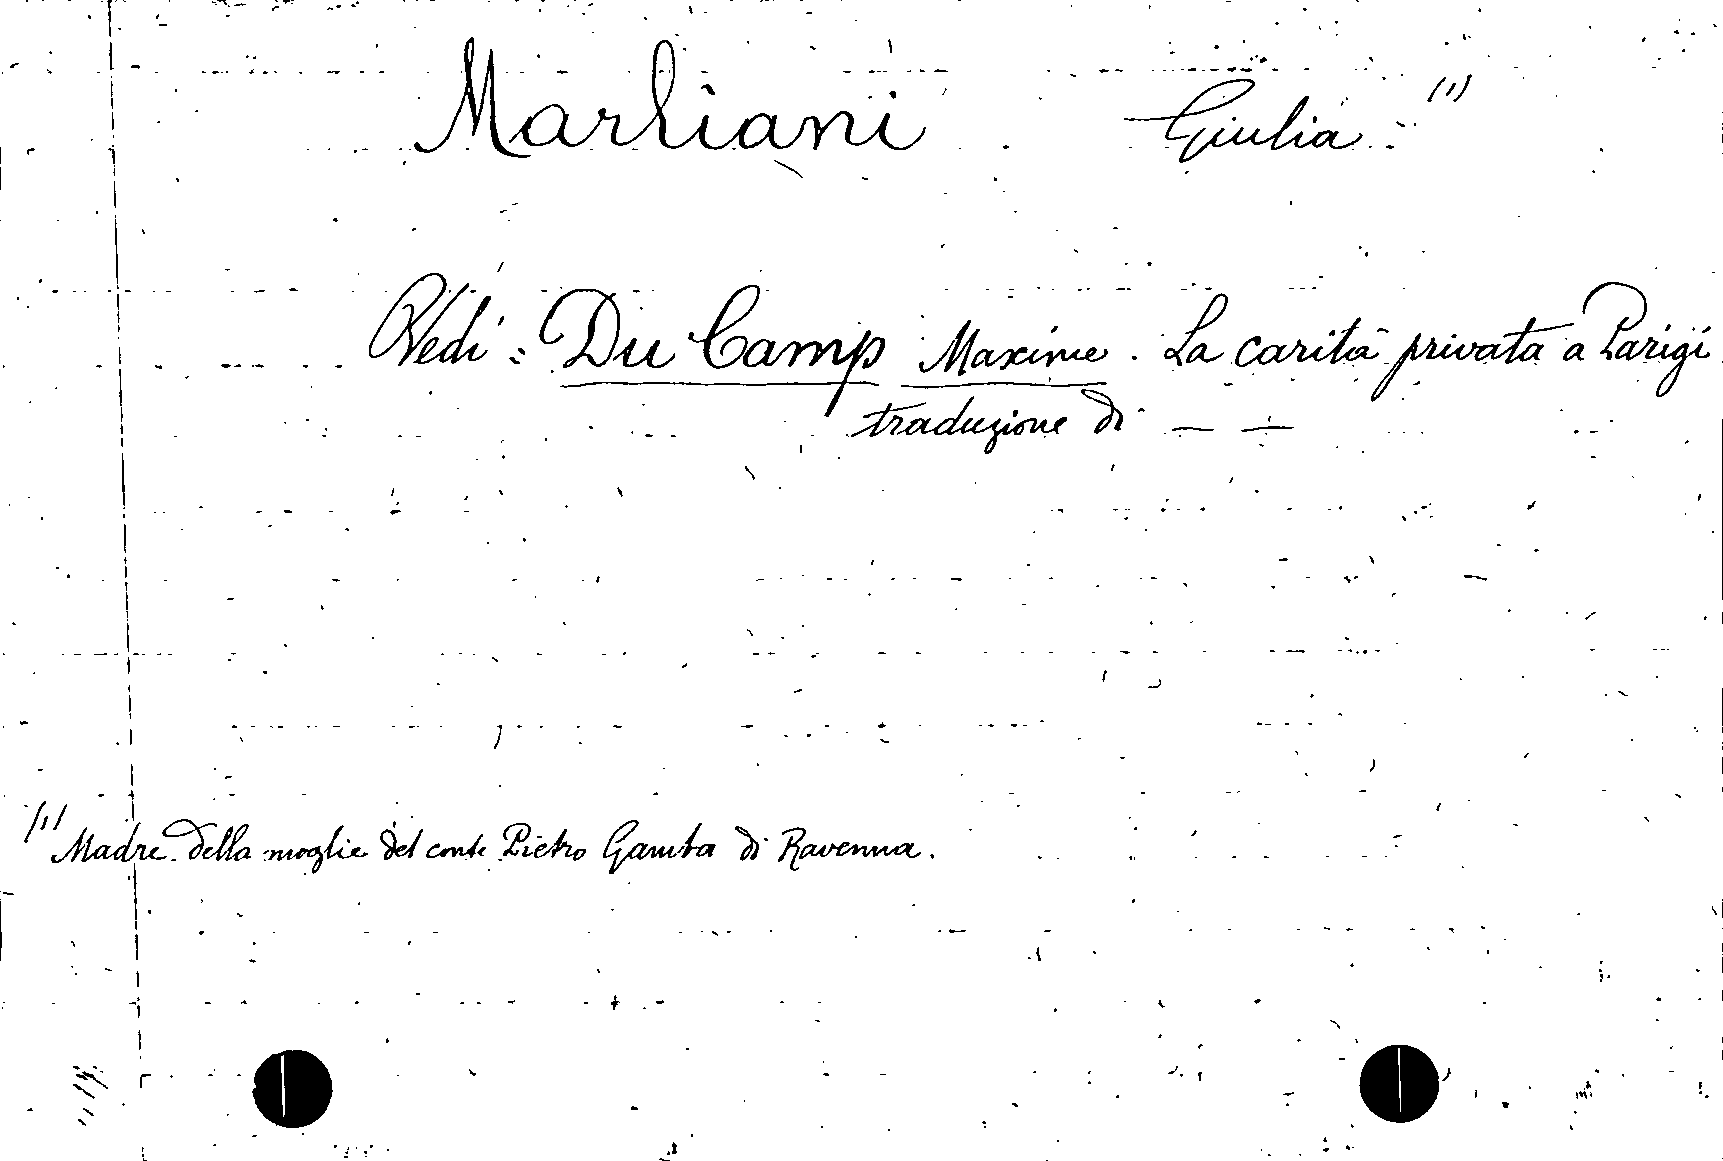 Marliani Giulia (1)
Vedi: Du Camp Maxime. La carità privata a Parigi
traduzione di — —
(1) Madre della moglie del conte Pietro Gamba di Ravenna.